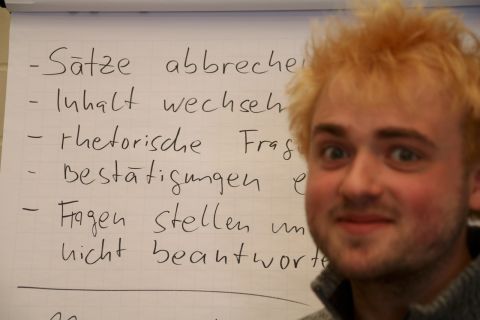 - Sätze abbreche
- Inhalt wechseln
- rhetorische Frag
- Bestätigungen e
- Fragen stellen un
nicht beantworte